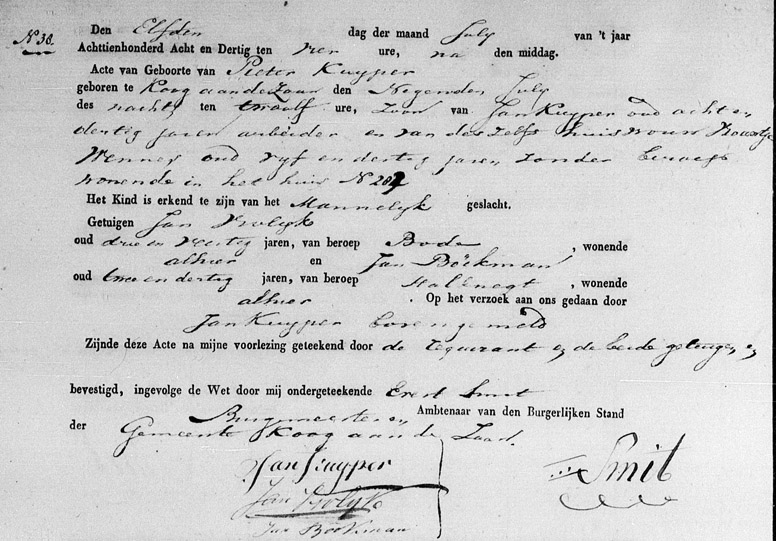 N 38.
Den Elfden dag der maand July van 't jaar
Achttienhonderd Acht en Dertig ten vier ure, na den middag.
Acte van Geboorte van Pieter Kuyper
geboren te Koog aan de Zaan den Negenden July
des nachts ten twaalf ure, Zoon van Jan Kuyper oud acht en
dertig jaren arbeider en van deszelfs huisvrouw Trouwtje
Wenner oud vyf en dertig jaren zonder beroep
wonende in het huis N 284
Het Kind is erkend te zijn van het Mannelyk geslacht.
Getuigen Jan Vrolyk
oud drie en veertig jaren, van beroep Bode, wonende
alhier en Jan Böekman
oud twee en dertig jaren, van beroep Stalknegt, wonende
alhier. Op het verzoek aan ons gedaan door
Jan Kuyper bovengemeld
Zijnde deze Acte na mijne voorlezing geteekend door de requirant en de beide getuigen en
bevestigd, ingevolge de Wet door mij ondergeteekende Evert Smit
Burgemeester en Ambtenaar van den Burgerlijken Stand
der Gemeente Koog aan de Zaan.
Jan Kuyper
Smit
Jan Vrolyk
Jan Boekman